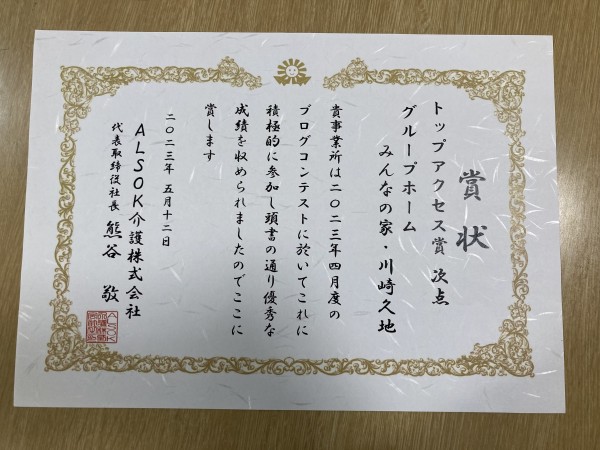 賞状
トップアクセス賞 次点
グループホーム
みんなの家・川崎久地
貴事業所は二〇二三年四月度の
ブログコンテストに於いてこれに
積極的に参加し頭書の通り優秀な
成績を収められましたのでここに
賞します
二〇二三年 五月十二日
ALSOK介護株式会社
代表取締役社長 熊谷 敬